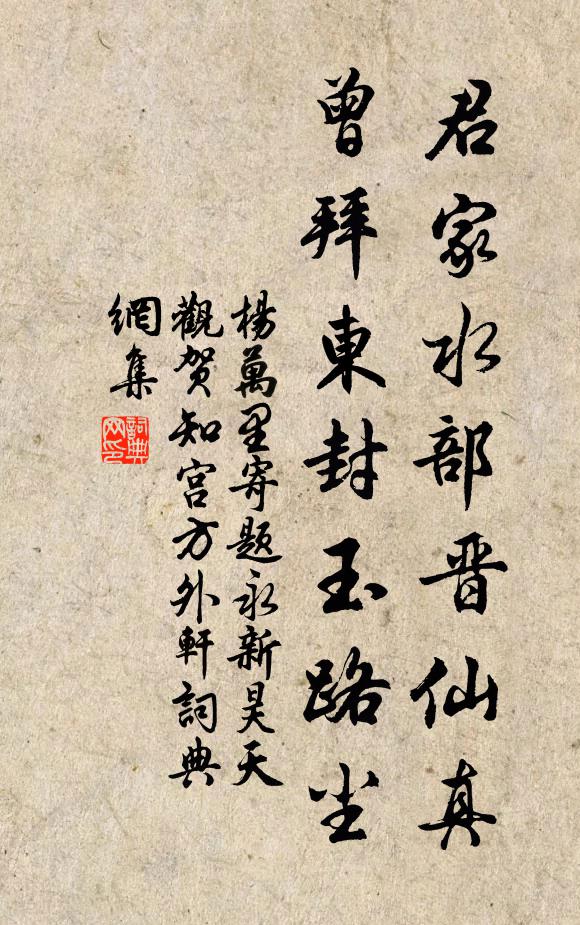 君家水部晋仙真
曾拜東封玉路尘
楊萬里寄題永新昊天
觀賀知宫方外軒詞典
網集
詞典网印